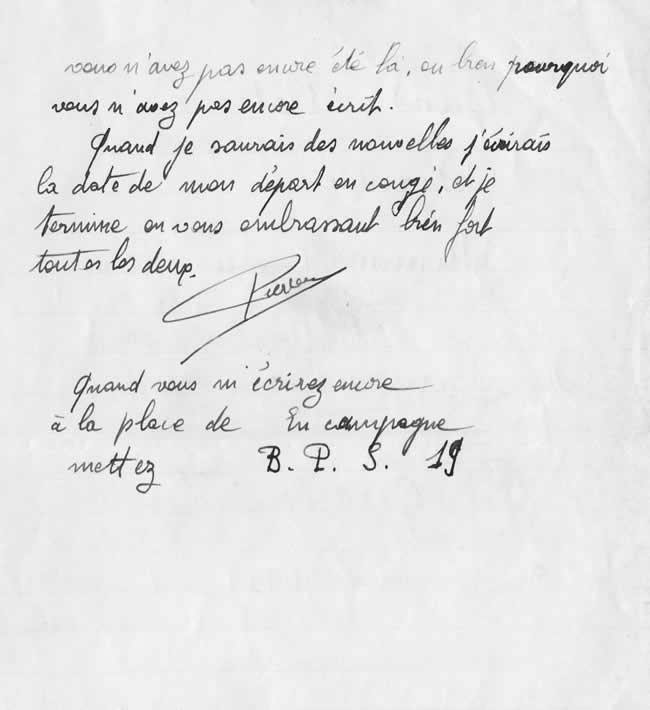 vous n'avez pas encore été là, ou bien pourquoi
vous n'avez pas encore écrit.
Quand je saurais des nouvelles j'écrirais
la date de mon départ en congé, et je
termine en vous embrassant bien fort
toutes les deux.
Pierre
Quand vous m'écrirez encore
à la place de En campagne
mettez B. P. S. 19